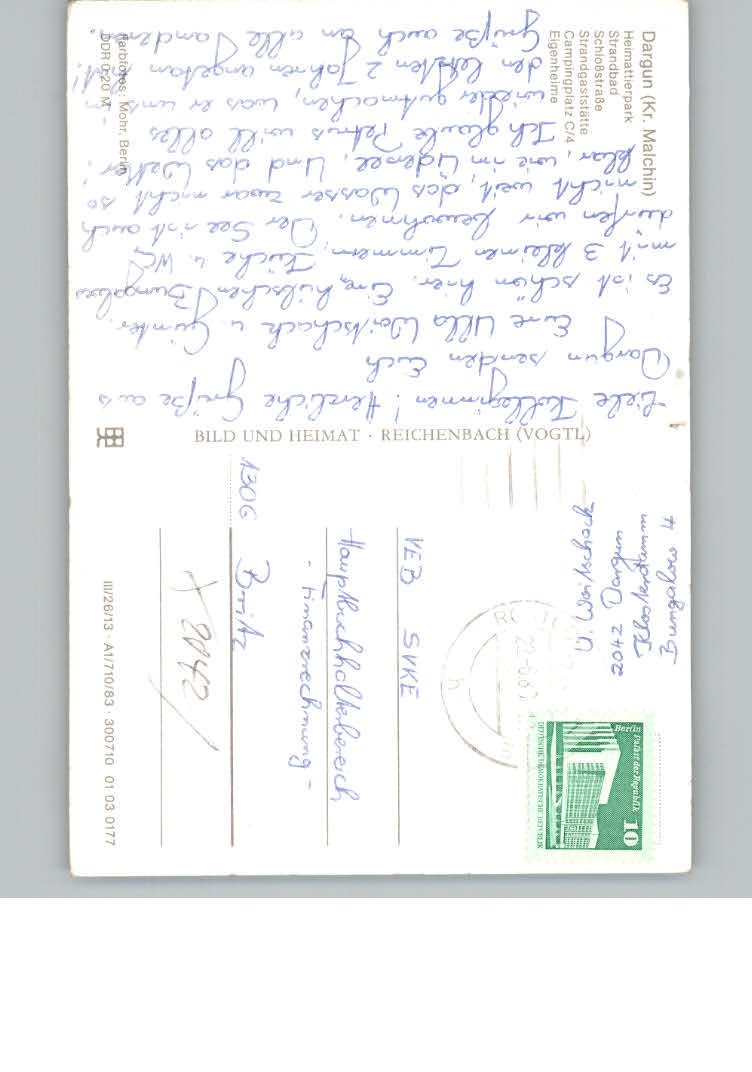 Dargun (Kr. Malchin)
Heimattierpark
Strandbad
Schloßstraße
Strandgaststätte
Campingplatz C/4
Eigenheime
Liebe Kolleginnen! Herzliche Grüße aus
Dargun senden Euch
Eure Ulla u. Günter.
Es ist schön hier. Einen hübschen Bungalow
mit 3 kleinen Zimmern, Küche u. WC
dürfen wir bewohnen. Der See ist auch
nicht weit, das Wasser zwar nicht so
klar, wie im Üdersee. Und das Wetter!
Ich glaube Petrus will alles
wieder gutmachen, was er uns in
den letzten 2 Jahren angetan hat!
Grüße auch an alle anderen.
Farbfotos: Mohr, Berlin
DDR 0,20 M
BILD UND HEIMAT · REICHENBACH (VOGTL)
Bungalow 4
2042 Dargun
VEB SVKE
Hauptbuchhalterbereich
- Finanzrechnung -
1306 Britz
2042
Berlin
Palast der Republik
10
DEUTSCHE DEMOKRATISCHE REPUBLIK
III/26/13 · A1/710/83 · 300710 01 03 0177